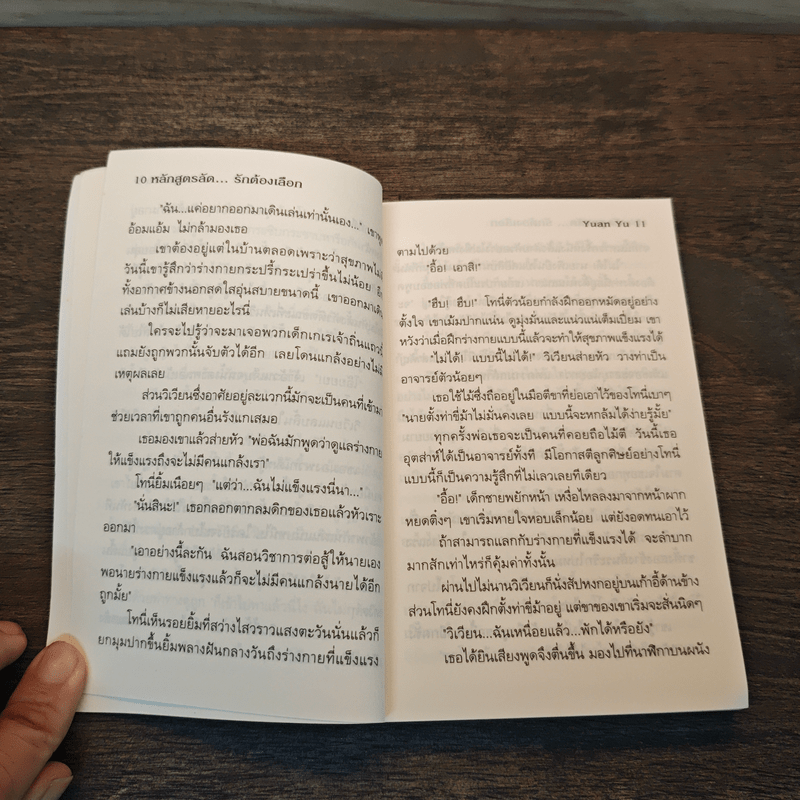 10 หลักสูตรลัด... รักต้องเลือก
"ฉัน...แค่อยากออกมาเดินเล่นเท่านั้นเอง..."
อ้อมแอ้ม ไม่กล้ามองเธอ
เขาต้องอยู่แต่ในบ้านตลอดเพราะว่าสุขภาพไม่
วันนี้เขารู้สึกว่าร่างกายกระปรี้กระเปร่าขึ้นไม่น้อย
ทั้งอากาศข้างนอกสดใสอุ่นสบายขนาดนี้ เขาออกมาเดิน
เล่นบ้างก็ไม่เสียหายอะไรนี่
ใครจะไปรู้ว่าจะมาเจอพวกเด็กเกเรเจ้าถิ่นแถว
แถมยังถูกพวกนั้นจับตัวได้อีก เลยโดนแกล้งอย่างไม่มี
เหตุผลเลย
ส่วนวิเวียนซึ่งอาศัยอยู่ละแวกนี้มักจะเป็นคนที่เข้ามา
ช่วยเวลาที่เขาถูกคนอื่นรังแกเสมอ
เธอมองเขาแล้วส่ายหัว "พ่อฉันมักพูดว่าดูแลร่างกาย
ให้แข็งแรงถึงจะไม่มีคนแกล้งเรา"
โทนี่ยิ้มเนือยๆ "แต่ว่า...ฉันไม่แข็งแรงนี่นา..."
"นั่นสินะ!" เธอกลอกตากลมดิกของเธอแล้วหัวเราะ
ออกมา
"เอาอย่างนี้ละกัน ฉันสอนวิชาการต่อสู้ให้นายเอง
พอนายร่างกายแข็งแรงแล้วก็จะไม่มีคนแกล้งนายได้อีก
ถูกมั้ย"
โทนี่เห็นรอยยิ้มที่สว่างไสวราวแสงตะวันนั่นแล้วก็
ยกมุมปากขึ้นยิ้มพลางฝันกลางวันถึงร่างกายที่แข็งแรง
Yuan Yu 11
ตามไปด้วย
"อื้อ! เอาสิ!"
"ฮึบ! ฮึบ!" โทนี่ตัวน้อยกำลังฝึกออกหมัดอยู่อย่าง
ตั้งใจ เขาเม้มปากแน่น ดูมุ่งมั่นและแน่วแน่เต็มเปี่ยม เขา
หวังว่าเมื่อฝึกร่างกายแบบนี้แล้วจะทำให้สุขภาพแข็งแรงได้
"ไม่ได้! แบบนี้ไม่ได้!" วิเวียนส่ายหัว วางท่าเป็น
อาจารย์ตัวน้อยๆ
เธอใช้ไม้ซึ่งถืออยู่ในมือตีขาที่ย่อเอาไว้ของโทนี่เบาๆ
"นายตั้งท่าขี่ม้าไม่มั่นคงเลย แบบนี้จะหกล้มได้ง่ายรู้มั้ย"
ทุกครั้งพ่อเธอจะเป็นคนที่คอยถือไม้ตี วันนี้เธอ
อุตส่าห์ได้เป็นอาจารย์ทั้งที มีโอกาสตีลูกศิษย์อย่างโทนี่
แบบนี้ก็เป็นความรู้สึกที่ไม่เลวเลยทีเดียว
"อื้อ!" เด็กชายพยักหน้า เหงื่อไหลลงมาจากหน้าผาก
หยดติ๋งๆ เขาเริ่มหายใจหอบเล็กน้อย แต่ยังอดทนเอาไว้
ถ้าสามารถแลกกับร่างกายที่แข็งแรงได้ จะลำบาก
มากสักเท่าไหร่ก็คุ้มค่าทั้งนั้น
ผ่านไปไม่นานวิเวียนก็นั่งสัปหงกอยู่บนเก้าอี้ด้านข้าง
ส่วนโทนี่ยังคงฝึกตั้งท่าขี่ม้าอยู่ แต่ขาของเขาเริ่มจะสั่นนิดๆ
"วิเวียน...ฉันเหนื่อยแล้ว...พักได้หรือยัง"
เธอได้ยินเสียงพูดจึงตื่นขึ้น มองไปที่นาฬิกาบนผนัง